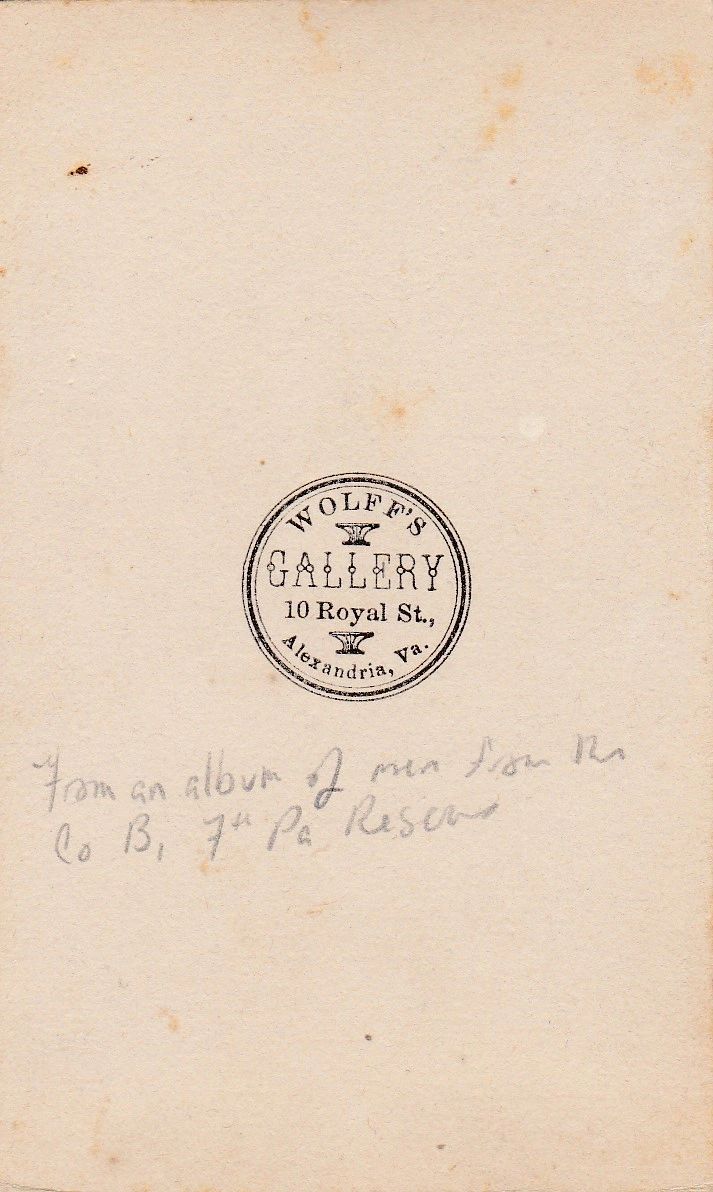 WOLFF'S
GALLERY
10 Royal St.,
Alexandria, Va.
From an album of men from the
Co B, 7th Pa Reserve